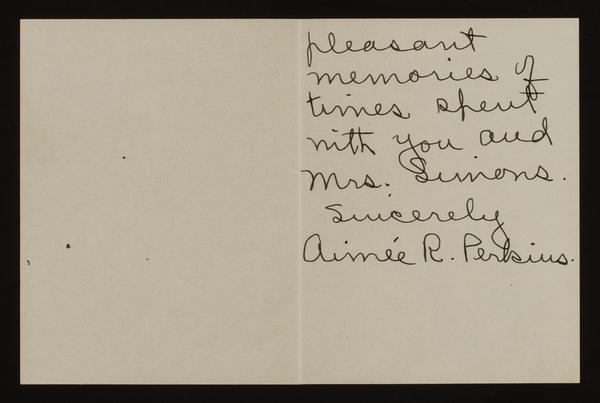 pleasant
memories of
times spent
with you and
Mrs. Simons.
Sincerely
Aimée R. Perkins.